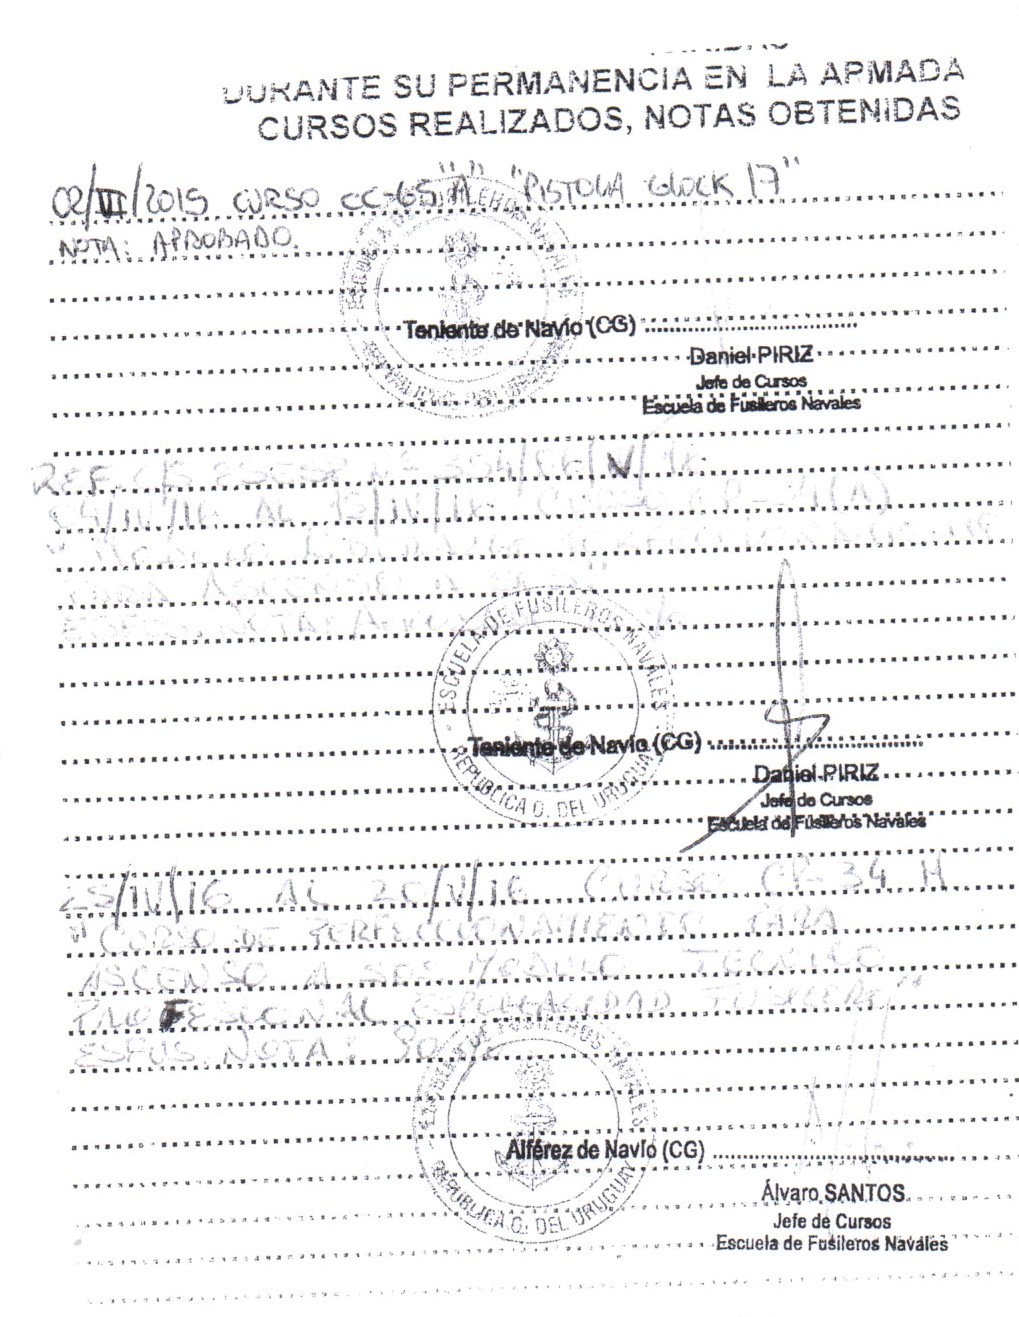 DURANTE SU PERMANENCIA EN LA ARMADA
CURSOS REALIZADOS, NOTAS OBTENIDAS
02/VII/2015 CURSO CC-65"A" "PISTOLA GLOCK 17"
NOTA: APROBADO.
ESCUELA DE FUSILEROS NAVALES
REPUBLICA O. DEL URUGUAY
Teniente de Navío (CG)
Daniel PIRIZ
Jefe de Cursos
Escuela de Fusileros Navales
REF. C/S ESESP Nº 354/ /IV/16
/IV/16 AL 15/IV/16 CURSO CP-31(A)
PARA ASCENSO A
ESFUS. NOTA:
ESCUELA DE FUSILEROS NAVALES
REPUBLICA O. DEL URUGUAY
Teniente de Navío (CG)
Daniel PIRIZ
Jefe de Cursos
Escuela de Fusileros Navales
25/IV/16 AL 20/V/16 CURSO CP-34 H
"CURSO DE PERFECCIONAMIENTO PARA
ASCENSO A SOS MODULO TECNICO
PROFESIONAL ESPECIALIDAD FUSILERO"
ESFUS NOTA: 90
ESCUELA DE FUSILEROS NAVALES
REPUBLICA O. DEL URUGUAY
Alférez de Navío (CG)
Álvaro SANTOS
Jefe de Cursos
Escuela de Fusileros Navales